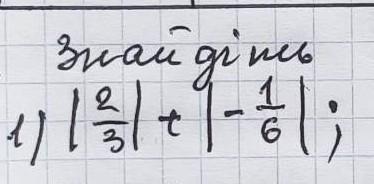 Знайдіть
1) |2/3| + |-1/6|;